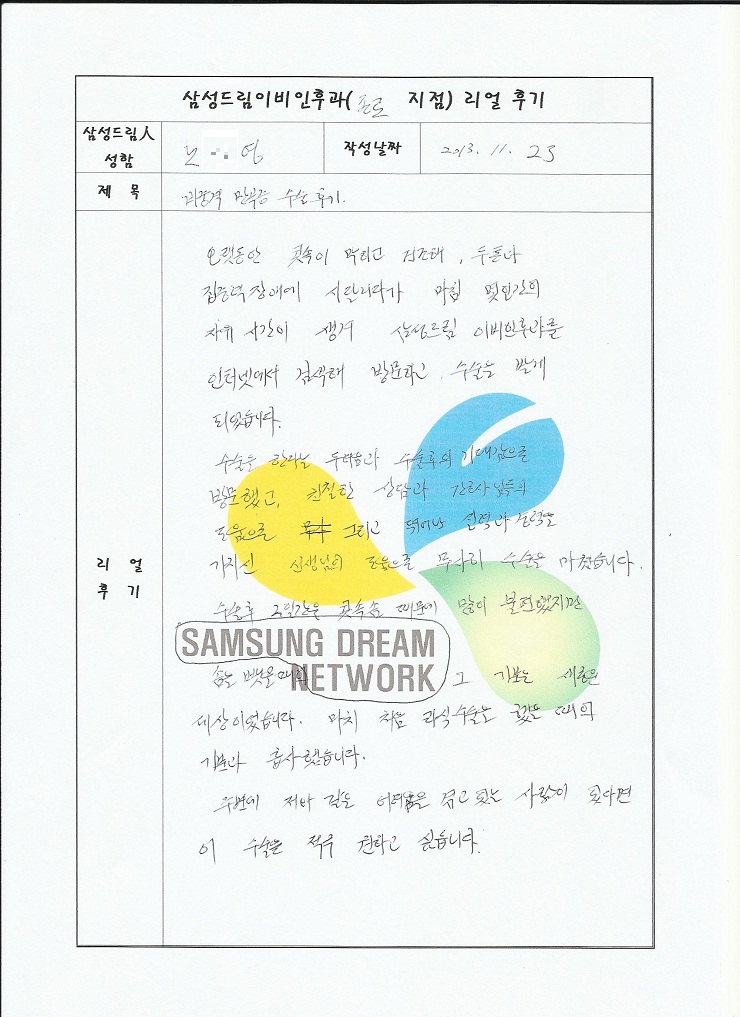 삼성드림이비인후과( 종로 지점) 리얼 후기
삼성드림人 성함
노 영
작성날짜
2013. 11. 23
제 목
비중격 만곡증 수술 후기.
리 얼 후 기
오랫동안 콧속이 막히고 건조해, 두통과
집중력장애에 시달리다가 마침 몇일간의
자유 시간이 생겨 삼성드림 이비인후과를
인터넷에서 검색해 방문하고, 수술을 받게
되었습니다.
수술을 한다는 두려움과 수술후의 기대감으로
방문했고, 친절한 상담과 간호사님들의
도움으로 그리고 뛰어난 실력과 능력을
가지신 선생님의 도움으로 무사히 수술을 마쳤습니다.
수술후 2일간은 콧속솜 때문에 많이 불편했지만
SAMSUNG DREAM
NETWORK
솜을 뺏을때의 그 기분은 새로운
세상이었습니다. 마치 처음 라식수술을 했을 때의
기분과 흡사했습니다.
주변에 저와 같은 어려움을 겪고 있는 사람이 있다면
이 수술을 적극 권하고 싶습니다.